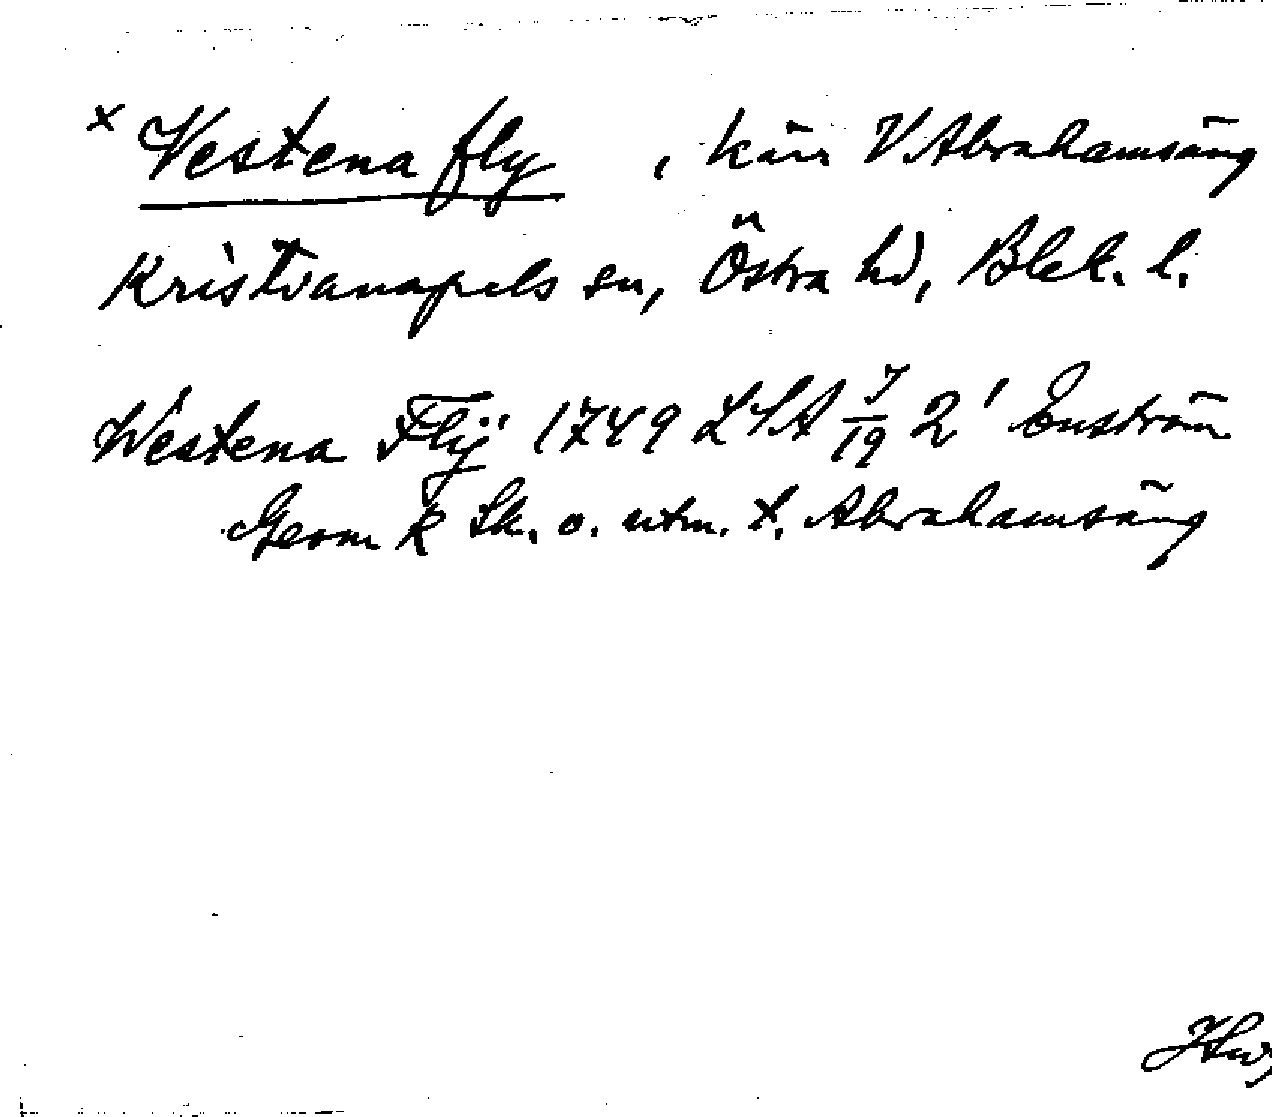 × Vestena fly , kärr V. Abrahamsäng
Kristvanapels sn, Östra hd, Blek. l.
Westena Flÿ 1749 LSA 7/19 2' Enström
Geom K Sk. o. utm. t. Abrahamsäng